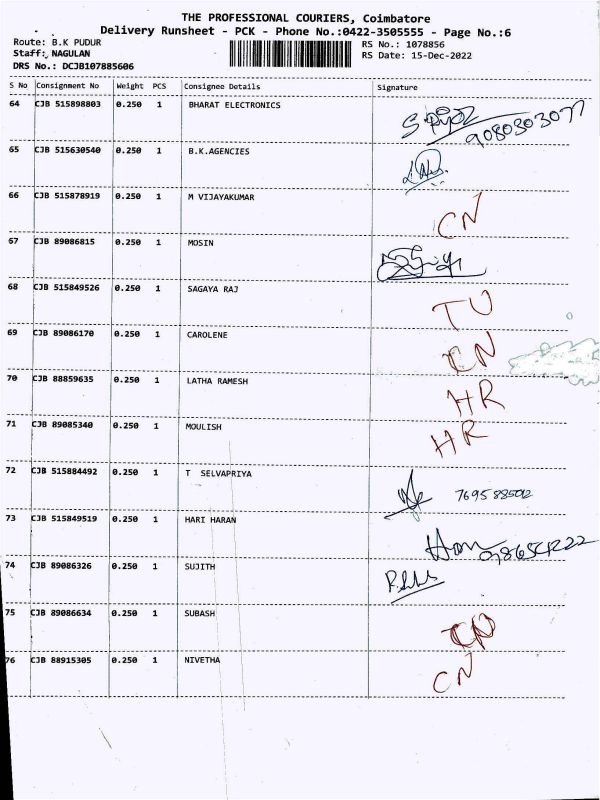 THE PROFESSIONAL COURIERS, Coimbatore
Delivery Runsheet - PCK - Phone No.:0422-3505555 - Page No.:6
Route: B.K PUDUR
Staff: NAGULAN
DRS No.: DCJB107885606
RS No.: 1078856
RS Date: 15-Dec-2022
S No Consignment No Weight PCS Consignee Details Signature
64 CJB 515898803 0.250 1 BHARAT ELECTRONICS
65 CJB 515630540 0.250 1 B.K.AGENCIES
66 CJB 515878919 0.250 1 M VIJAYAKUMAR CN
67 CJB 89086815 0.250 1 MOSIN
68 CJB 515849526 0.250 1 SAGAYA RAJ TU
69 CJB 89086170 0.250 1 CAROLENE CN
70 CJB 88859635 0.250 1 LATHA RAMESH HR
71 CJB 89085340 0.250 1 MOULISH HR
72 CJB 515884492 0.250 1 T SELVAPRIYA
73 CJB 515849519 0.250 1 HARI HARAN
74 CJB 89086326 0.250 1 SUJITH
75 CJB 89086634 0.250 1 SUBASH
76 CJB 88915305 0.250 1 NIVETHA CN